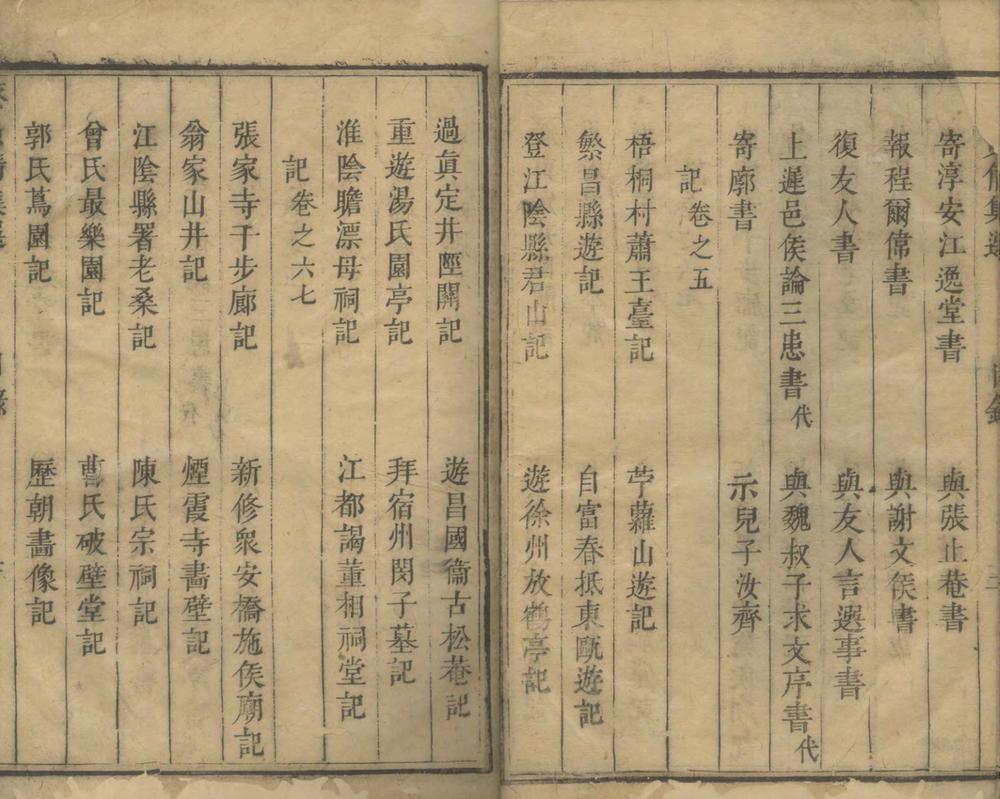 寄淳安江逸堂書　與張止菴書
報程爾傗書　與謝文侯書
復友人書　與友人言選事書
上遲邑侯論三患書代　與魏叔子求文序書代
寄廓書　示兒子汝齊
記卷之五
梧桐村蕭王臺記　苧蘿山遊記
繁昌縣遊記　自富春抵東甌遊記
登江陰縣君山記　遊徐州放鶴亭記
過眞定井陘關記　遊昌國衞古松菴記
重遊湯氏園亭記　拜宿州閔子墓記
淮陰瞻漂母祠記　江都謁董相祠堂記
記卷之六七
張家寺千步廊記　新修衆安橋施侯廟記
翁家山井記　煙霞寺畵壁記
江陰縣署老桑記　陳氏宗祠記
曾氏最樂園記　曹氏破壁堂記
郭氏蔿園記　歷朝畵像記